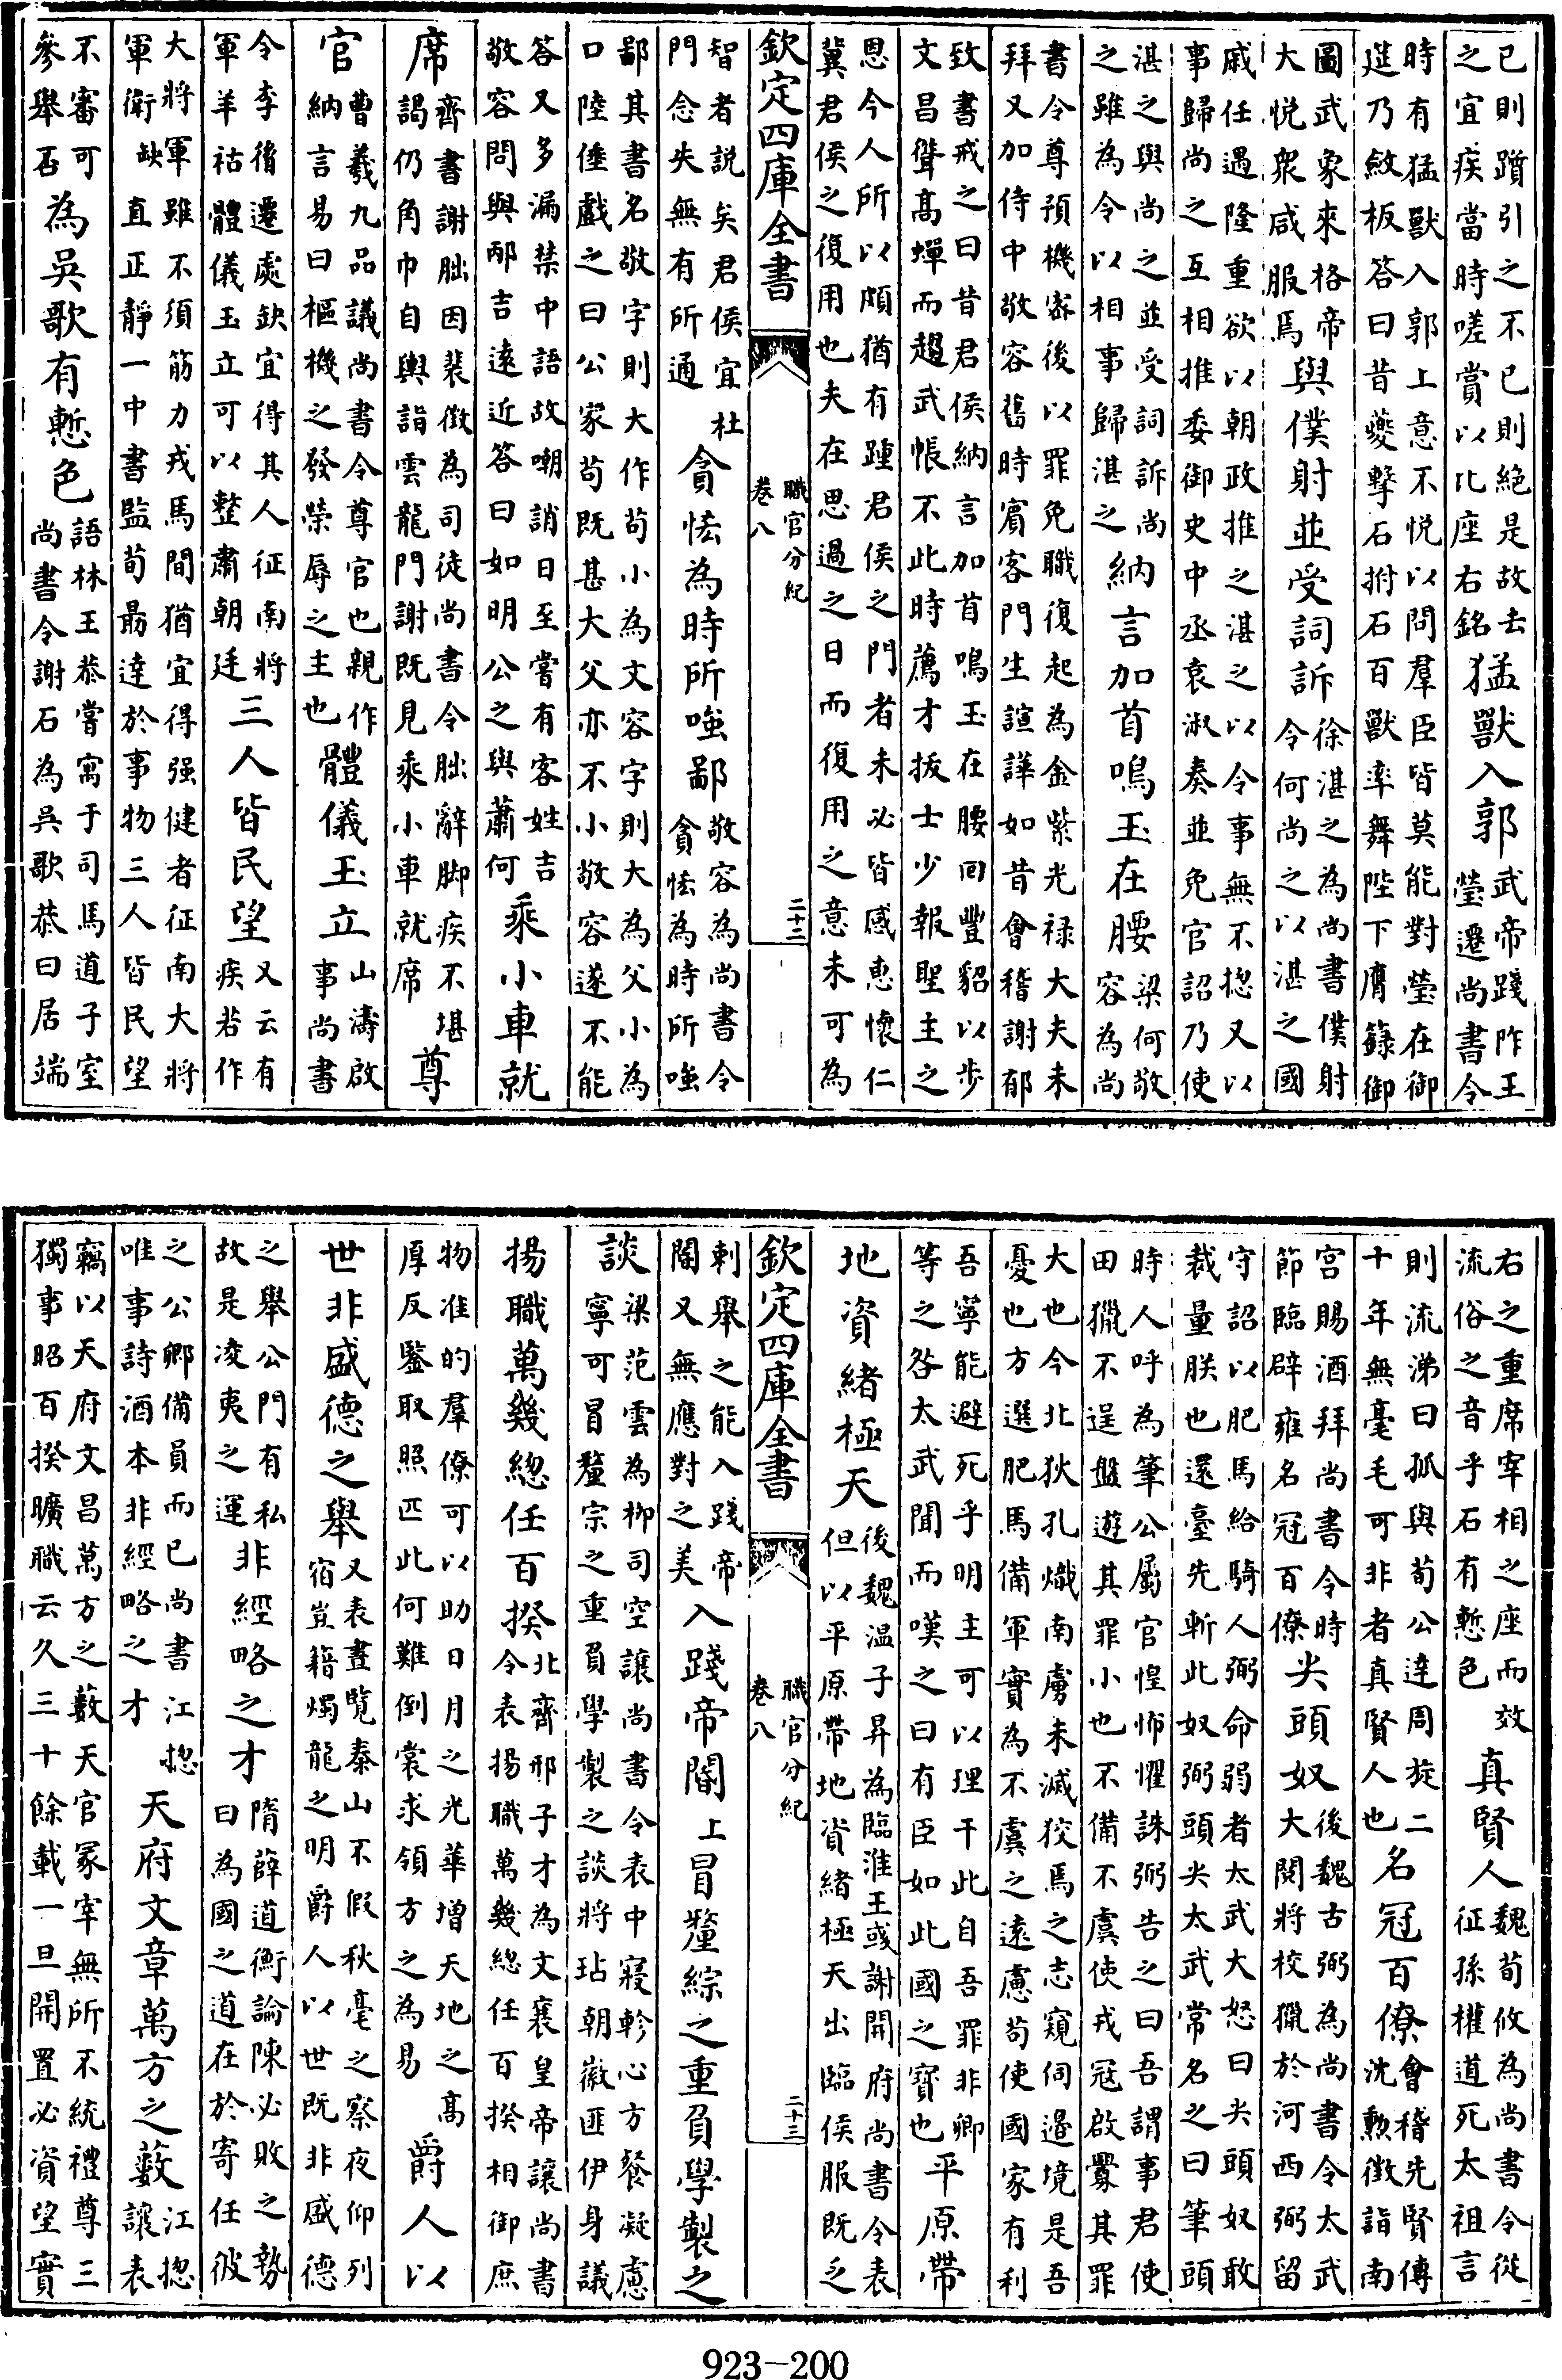 已則躓引之不已則絕是故去
之宜疾當時嗟賞以比座右銘
猛獸入郭
武帝踐阼王
瑩遷尚書令
時有猛獸入郭上意不悅以問羣臣皆莫能對瑩在御
筵乃斂板答曰昔夔擊石拊石百獸率舞陛下膺籙御
圖武象來格帝
大悅衆咸服焉
與僕射並受詞訴
徐湛之為尚書僕射
令何尚之以湛之國
戚任遇隆重欲以朝政推之湛之以令事無不揔又以
事歸尚之互相推委御史中丞袁淑奏並免官詔乃使
湛之與尚之並受詞訴尚
之雖為令以相事歸湛之
納言加首鳴玉在腰
梁何敬
容為尚
書令尊預機密後以罪免職復起為金紫光禄大夫未
拜又加侍中敬容舊時賓客門生諠譁如昔會稽謝郁
致書戒之曰昔君侯納言加首鳴玉在腰回豐貂以步
文昌聳髙蟬而趨武帳不此時薦才拔士少報聖主之
恩今人所以頗猶有踵君侯之門者未必皆感惠懷仁
冀君侯之復用也夫在思過之日而復用之意未可為
欽定四庫全書
職官分紀
卷八
二十二
智者説矣君侯宜杜
門念失無有所通
貪恡為時所嗤鄙
敬容為尚書令
貪恡為時所嗤
鄙其書名敬字則大作苟小為文容字則大為父小為
口陸倕戲之曰公家苟既甚大父亦不小敬容遂不能
答又多漏禁中語故嘲誚日至嘗有客姓吉
敬容問與邴吉遠近答曰如明公之與蕭何
乘小車就
席
齊書謝朏因裴徵為司徒尚書令朏辭脚疾不堪
謁仍角巾自輿詣雲龍門謝既見乘小車就席
尊
官
曹羲九品議尚書令尊官也親作
納言易曰樞機之發榮辱之主也
體儀玉立
山濤啟
事尚書
令李脩遷處缺宜得其人征南將
軍羊祜體儀玉立可以整肅朝廷
三人皆民望
又云有
疾若作
大將軍雖不須筋力戎馬間猶宜得强健者征南大將
軍衛缺直正靜一中書監荀勗達於事物三人皆民望
不審可
參舉否
為吳歌有慙色
語林王恭嘗寓于司馬道子室
尚書令謝石為吳歌恭曰居端
右之重席宰相之座而效
流俗之音乎石有慙色
真賢人
魏荀攸為尚書令從
征孫權道死太祖言
則流涕曰孤與荀公達周旋二
十年無毫毛可非者真賢人也
名冠百僚
會稽先賢傳
沈勲徵詣南
宮賜酒拜尚書令時
節臨辟雍名冠百僚
尖頭奴
後魏古弼為尚書令太武
大閱將校獵於河西弼留
守詔以肥馬給騎人弼命弱者太武大怒曰尖頭奴敢
裁量朕也還臺先斬此奴弼頭尖太武常名之曰筆頭
時人呼為筆公屬官惶怖懼誅弼告之曰吾謂事君使
田獵不逞盤遊其罪小也不備不虞使戎冦啟釁其罪
大也今北狄孔熾南虜未滅狡焉之志窺伺邊境是吾
憂也方選肥馬備軍實為不虞之遠慮苟使國家有利
吾寧能避死乎明主可以理干此自吾罪非卿
等之咎太武聞而嘆之曰有臣如此國之寶也
平原帶
地資緒極天
後魏温子昇為臨淮王彧謝開府尚書令表
但以平原帶地資緒極天出臨侯服既乏
欽定四庫全書
職官分紀
卷八
二十三
刺舉之能入踐帝
閽又無應對之美
入踐帝閽上冒釐綜之重負學製之
談
梁范雲為柳司空讓尚書令表中寢軫心方餐凝慮
寧可冒釐宗之重負學製之談將玷朝徽匪伊身議
揚職萬幾總任百揆
北齊邢子才為文襄皇帝讓尚書
令表揚職萬幾總任百揆相御庶
物准的羣僚可以助日月之光華增天地之髙
厚反鑒取照匹此何難倒裳求領方之為易
爵人以
世非盛德之舉
又表晝覽泰山不假秋毫之察夜仰列
宿豈籍燭龍之明爵人以世既非盛德
之舉公門有私
故是凌夷之運
非經略之才
隋薛道衡論陳必敗之勢
曰為國之道在於寄任彼
之公卿備員而已尚書江揔
唯事詩酒本非經略之才
天府文章萬方之藪
江揔
讓表
竊以天府文昌萬方之藪天官冢宰無所不統禮尊三
獨事昭百揆曠職云久三十餘載一旦開置必資望實
923-200